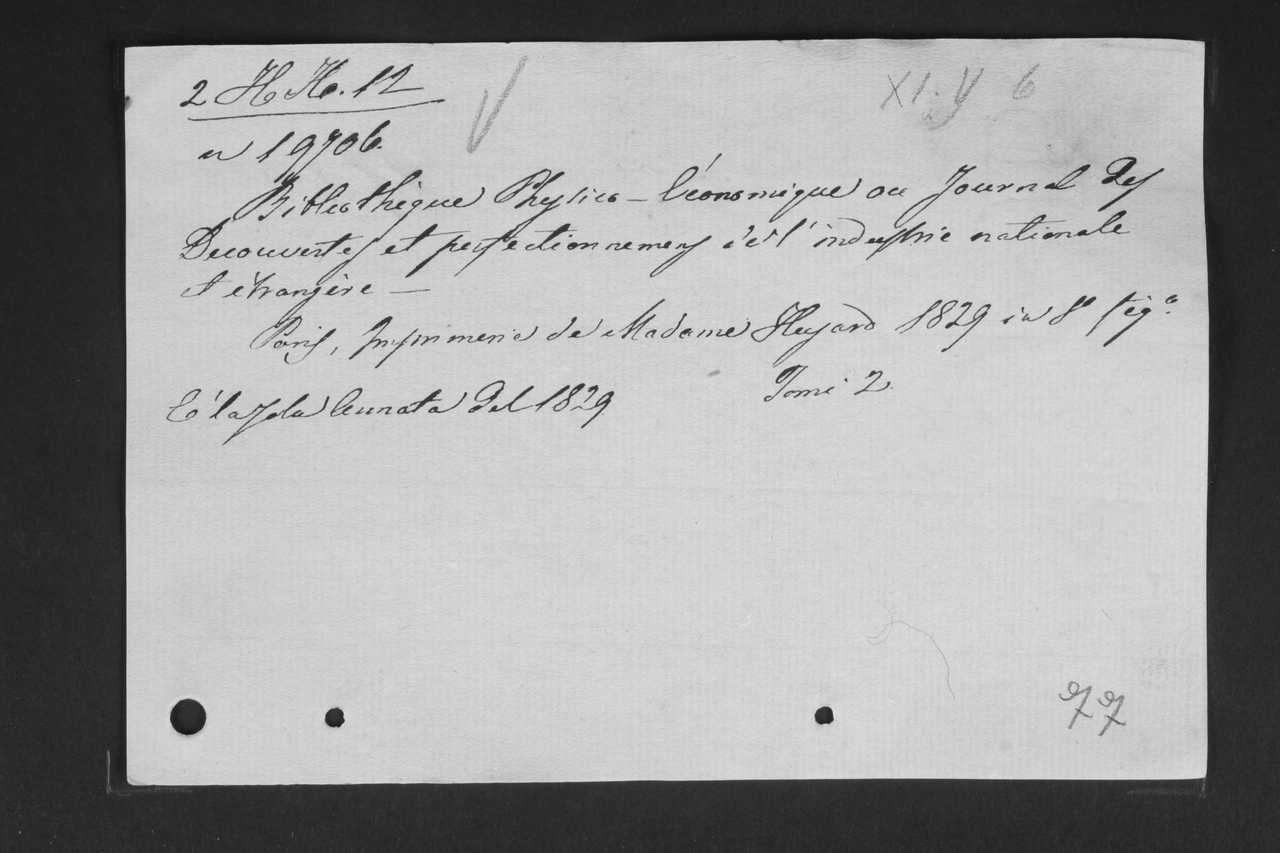 2 H H. 12
XI. V 6
n 19706.
Bibliothèque Physico-économique ou Journal des
Decouvertes et perfectionnemens de l'industrie nationale
et étrangère —
Paris, Imprimerie de Madame Husard 1829 in 8° fig.e
Tomi 2.
È la sola annata del 1829
77